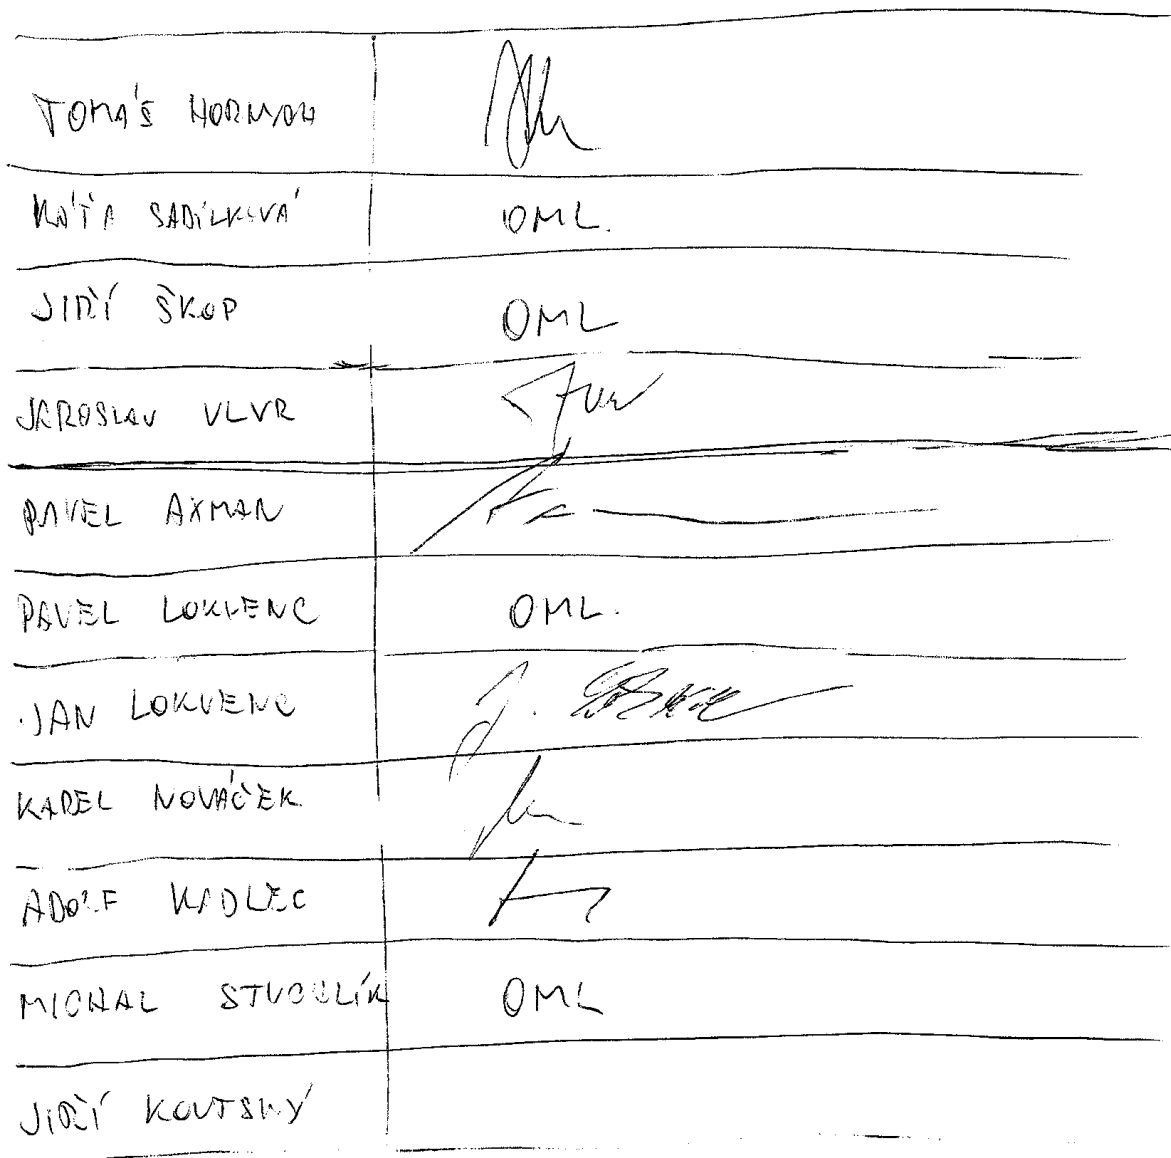 TOMÁŠ
KÁŤA SADÍLKOVÁ OML.
JIŘÍ ŠKOP OML
JAROSLAV VLVR
PAVEL AXMAN
PAVEL LOKVENC OML.
JAN LOKVENC
KAREL NOVÁČEK
ADOLF KADLEC
MICHAL STUCHLÍK OML
JIŘÍ KOUTSKÝ